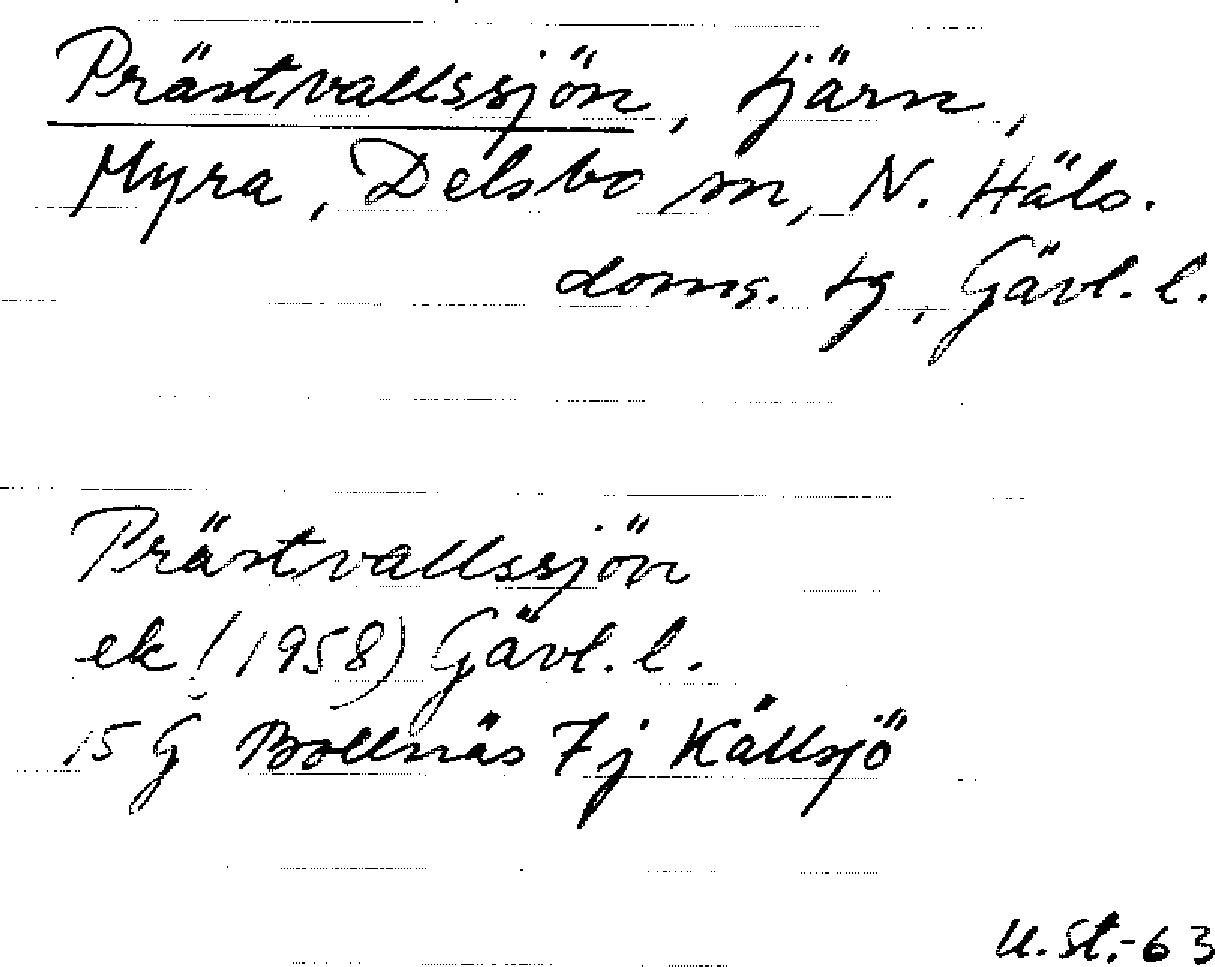 Prästvallssjön, tjärn,
Myra, Delsbo sn, N. Häls.
doms. tg, Gävl. l.
Prästvallssjön
ek (1958) Gävl. l.
15 G Bollnäs 7j Källsjö
U. St.-63